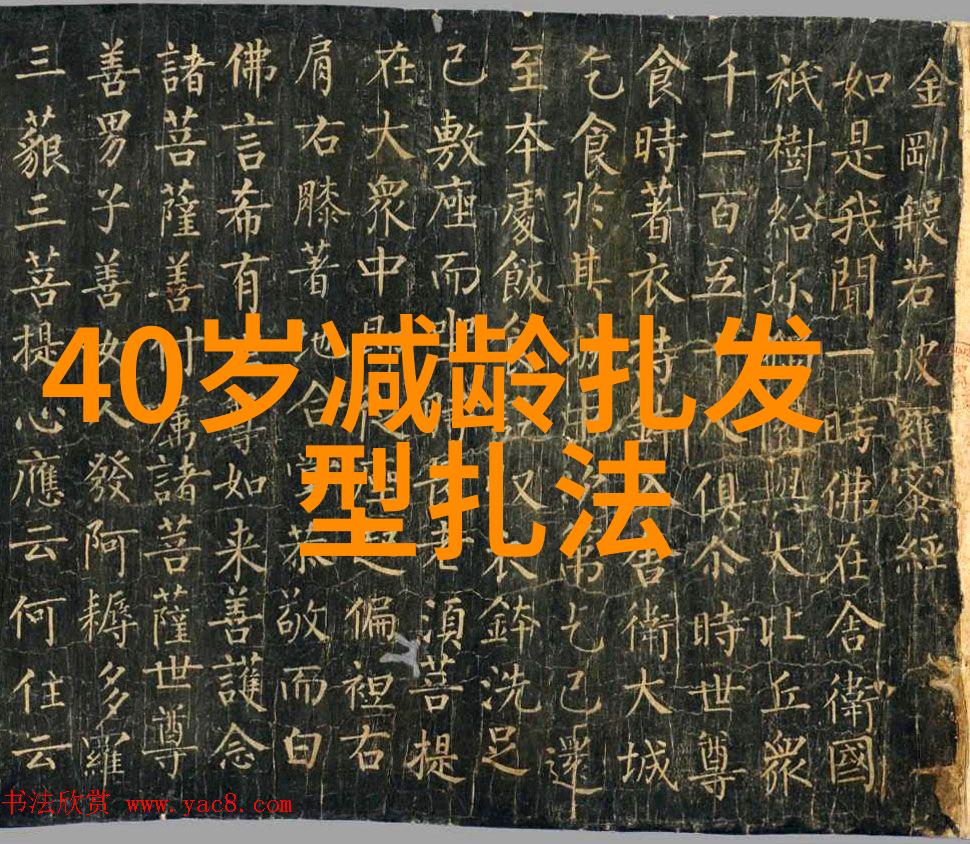 40岁减龄扎发
型扎法
金剛般若波羅蜜經
如是我聞一時佛在舍衛國
祇樹給孤獨園與大比丘衆
千二百五十人俱尒時世尊
食時著衣持鉢入舍衛大城
乞食於其城中次第乞已還
至本處飯食訖收衣鉢洗足
已敷座而坐時長老須菩提
在大衆中即從座起偏袒右
肩右膝著地合掌恭敬而白
佛言希有世尊如来善護念
諸菩薩善付属諸菩薩世尊
善男子善女人發阿耨多羅
三藐三菩提心應云何住云
书法欣赏 www.yac8.com